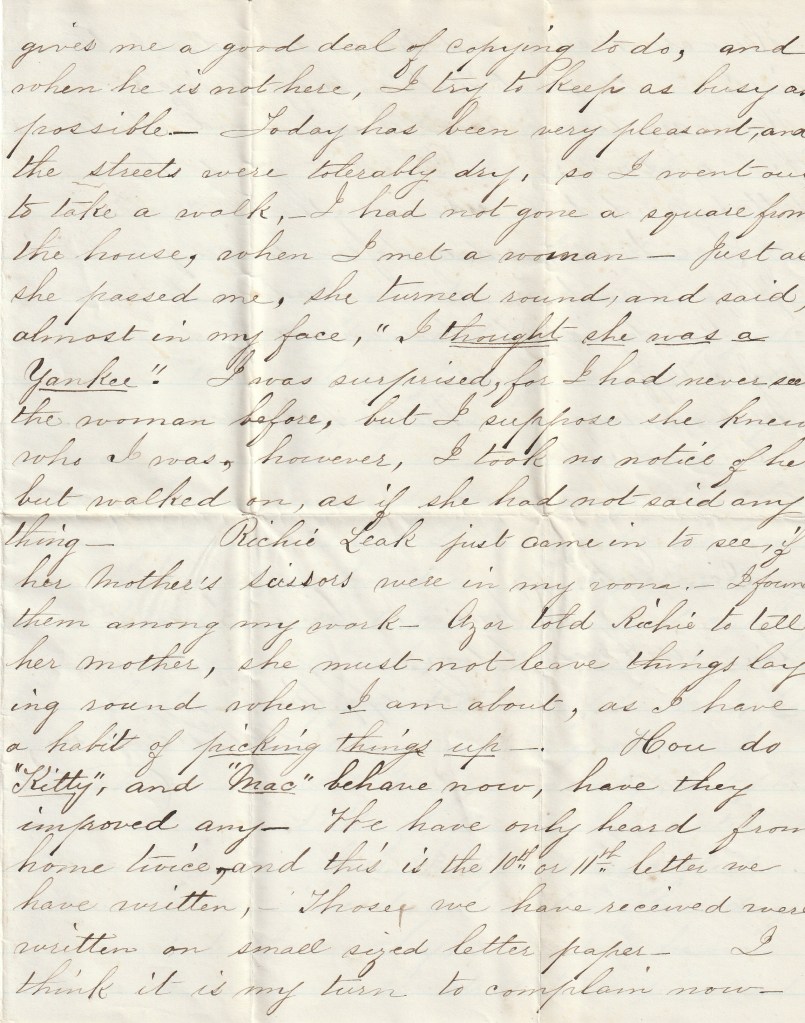 gives me a good deal of copying to do, and
when he is not here, I try to keep as busy as
possible.— Today has been very pleasant, and
the streets were tolerably dry, so I went out
to take a walk,— I had not gone a square from
the house, when I met a woman — Just as
she passed me, she turned round, and said,
almost in my face, "I thought she was a
Yankee". I was surprised, for I had never see
the woman before, but I suppose she knew
who I was, however, I took no notice of he
but walked on, as if she had not said any
thing — Richie Leak just came in to see, if
her Mother's scissors were in my room.— I foun
them among my work — Azor told Richie to tell
her mother, she must not leave things lay
ing round when I am about, as I have
a habit of picking things up —. How do
"Kitty", and "Mac" behave now, have they
improved any — We have only heard from
home twice, and this is the 10th or 11th letter we
have written,— Those we have received were
written on small sized letter paper — I
think it is my turn to complain now —